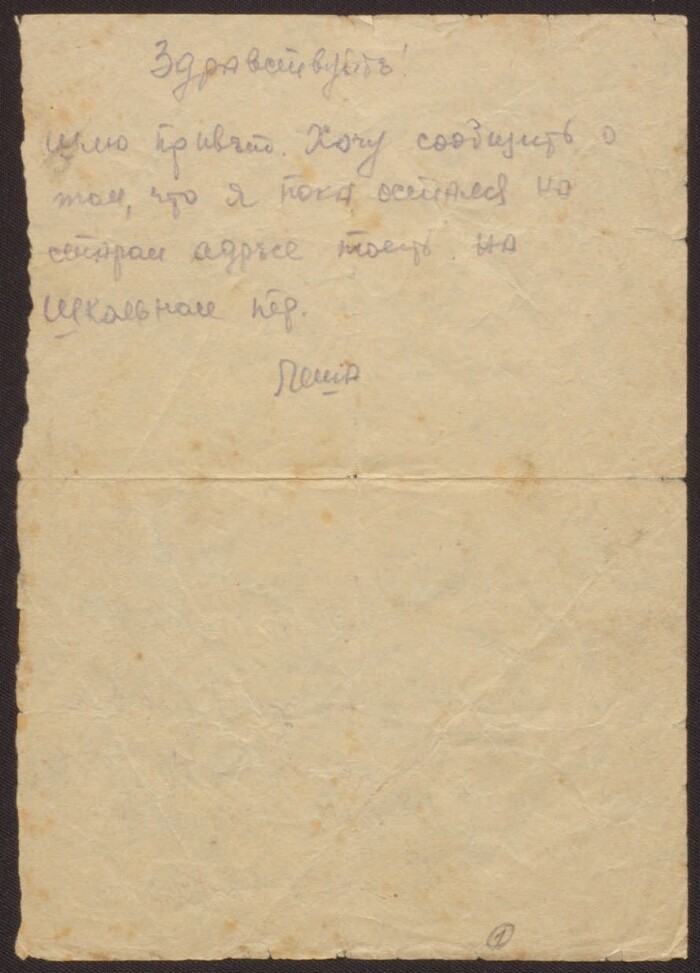 Здравствуйте!
Шлю привет. Хочу сообщить о
том, что я пока остался на
старом адресе тоесть на
Школьном пер.
Леша
1